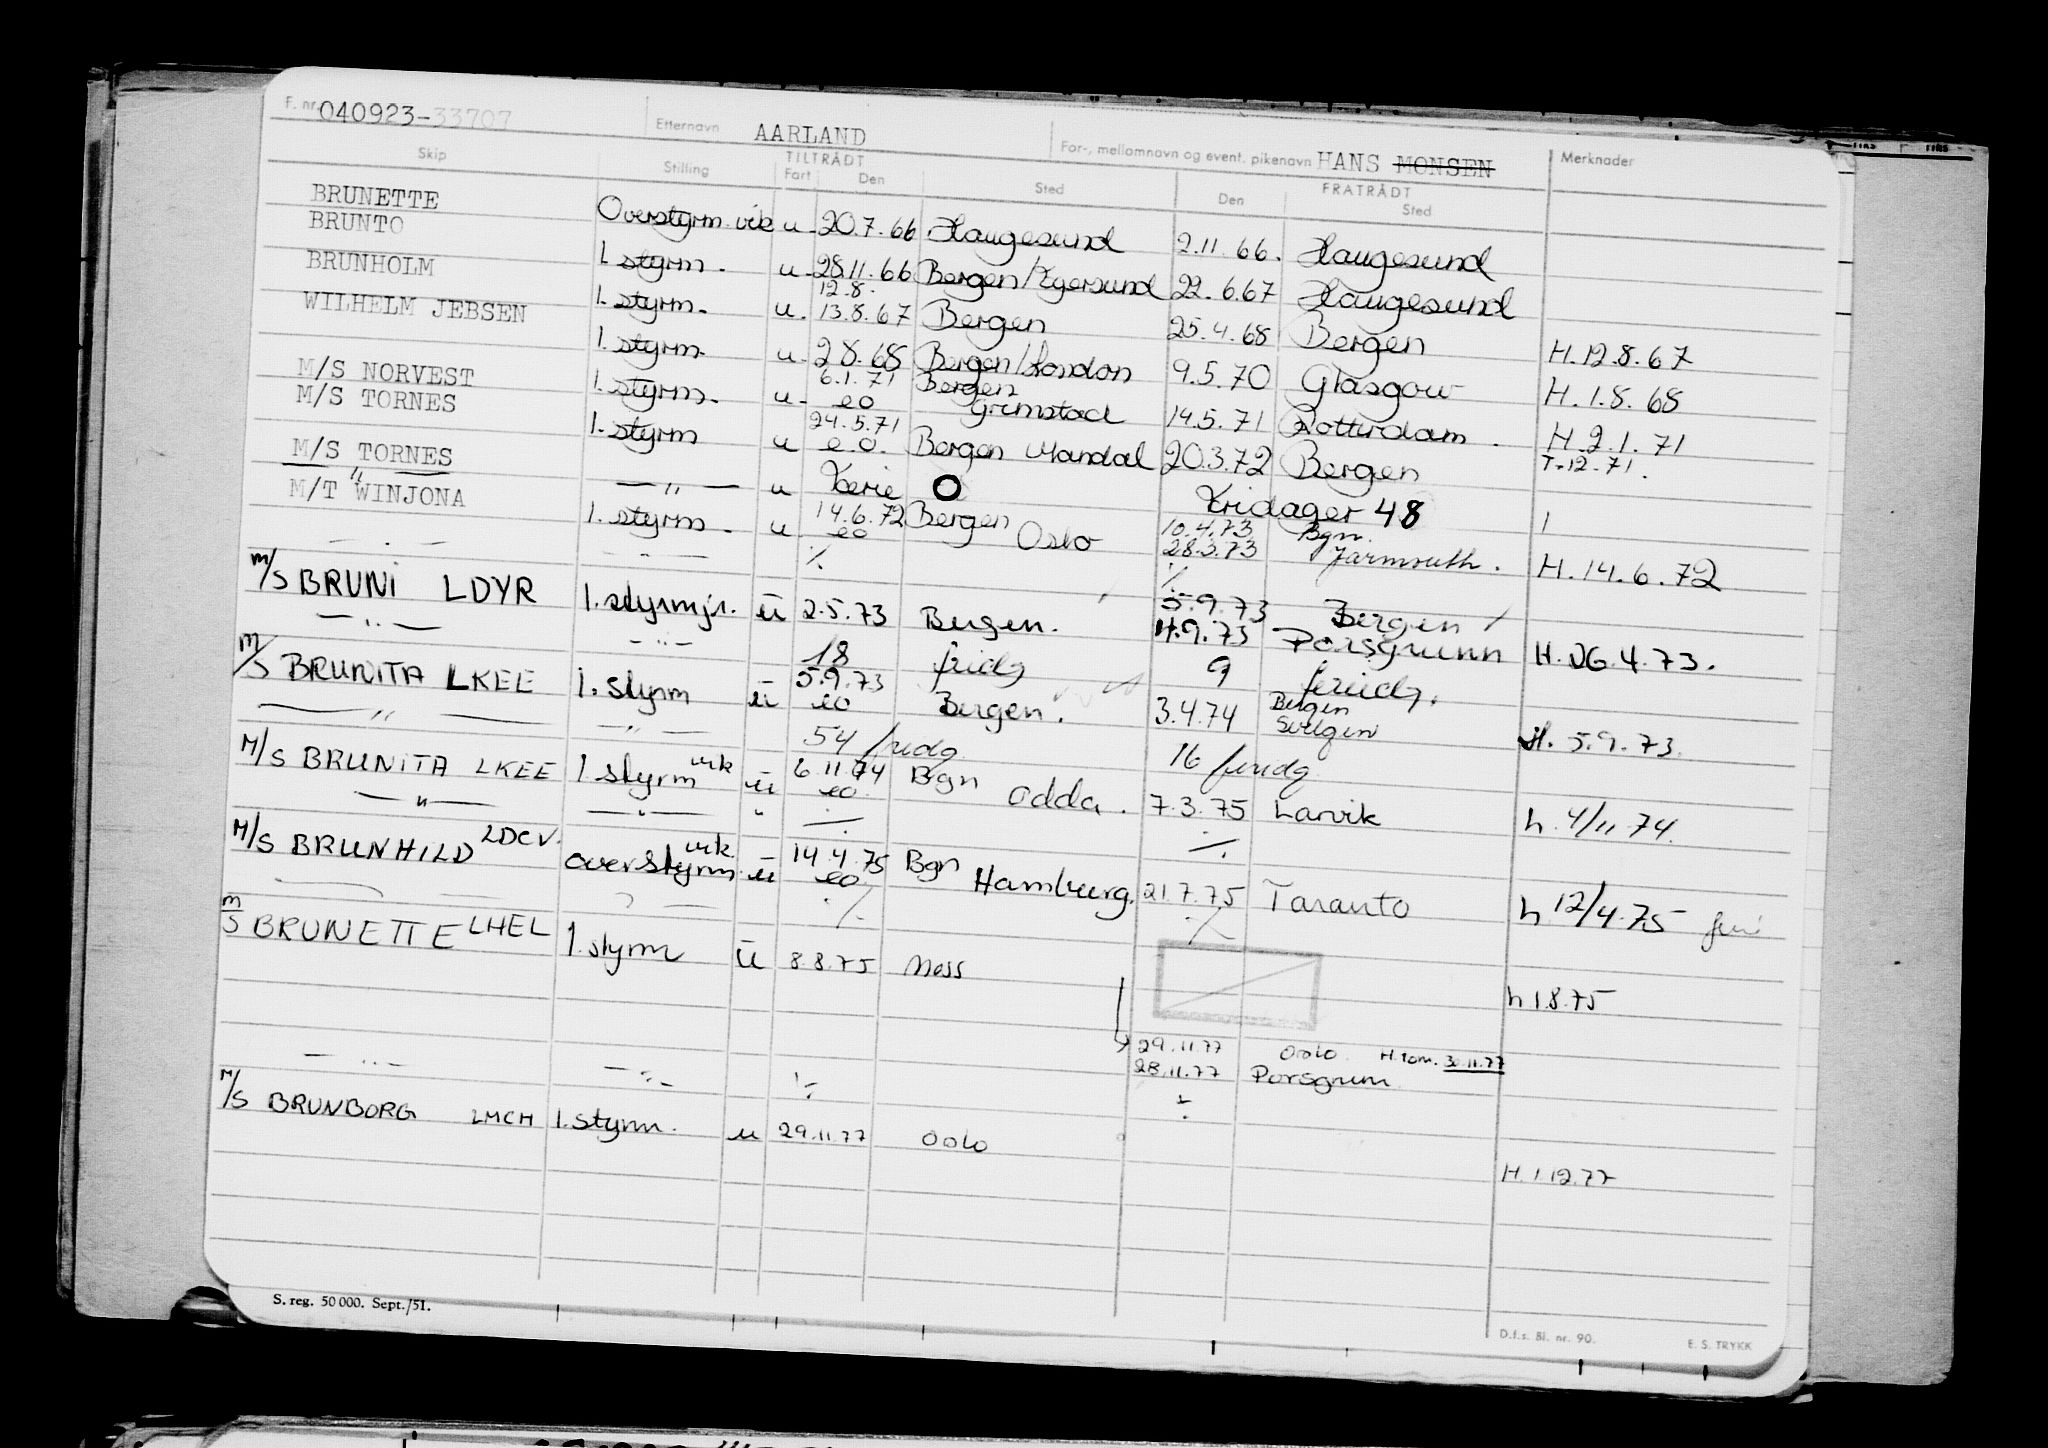 F. nr. 040923-33707 Etternavn AARLAND For-, mellomnavn og event. pikenavn HANS MONSEN Merknader
Skip Stilling TILTRÅDT FRATRÅDT
Fart Den Sted Den Sted
BRUNETTE Overstyrm. vik u. 20.7.66 Haugesund 2.11.66. Haugesund
BRUNTO 1 styrm. u. 28.11.66 Bergen/Egersund 22.6.67 Haugesund
12.8.
BRUNHOLM 1. styrm. u. 13.8.67 Bergen 25.4.68 Bergen H.12.8.67
WILHELM JEBSEN 1. styrm. u. 2 8.68 Bergen/London 9.5.70 Glasgow H.1.8.68
6.1.71 Bergen
M/S NORVEST 1. styrm. u. eo Grimstad 14.5.71 Rotterdam. H.2.1.71
24.5.71 T.12.71.
M/S TORNES 1. styrm u e.o. Bergen Mandal 20.3.72 Bergen
M/S TORNES — " — u Ferie O Fridager 48 1
"
14.6.72 Bergen 10.4.73 Bgn.
M/T WINJONA 1. styrm. u. eo Oslo 28.3.73 Jarmouth. H.14.6.72
— . — — " — ./. ./.
5.9.73 Bergen
M/S BRUNI LDYR 1. styrm jr. ü 2.5.73 Bergen. 4.9.73 Porsgrunn H.26.4.73.
— " — — " — 18 fridg 9 feridg.
5.9.73 Bergen
M/S BRUNITA LKEE 1. styrm ü eo Bergen. 3.4.74 Svelgen H. 5.9.73.
— " — — " — 54 fridg 16 feridg
M/S BRUNITA LKEE 1 styrm vik ü 6.11.74 Bgn
eo Odda. 7.3.75 Larvik h. 4/11 74.
— " — — " — " ./. ./.
M/S BRUNHILD LDCV. overstyrm vik. ü 14.4.75 Bgn
eo Hamburg. 21.7.75 Taranto h 12/4.75
./. ./.
M/S BRUNETTE LHEL 1. styrm ü 8.8.75 Moss
h 1.8.75
29.11.77 Oslo. H. tom. 30.11.77
— " — — " — ./. 28.11.77 Porsgrunn
./.
M/S BRUNBORG LMCH 1. styrm. u 29.11.77 Oslo
H. 1.12.77
S. reg. 50 000. Sept./51.
D.f.s. Bl. nr. 90. E. S. TRYKK